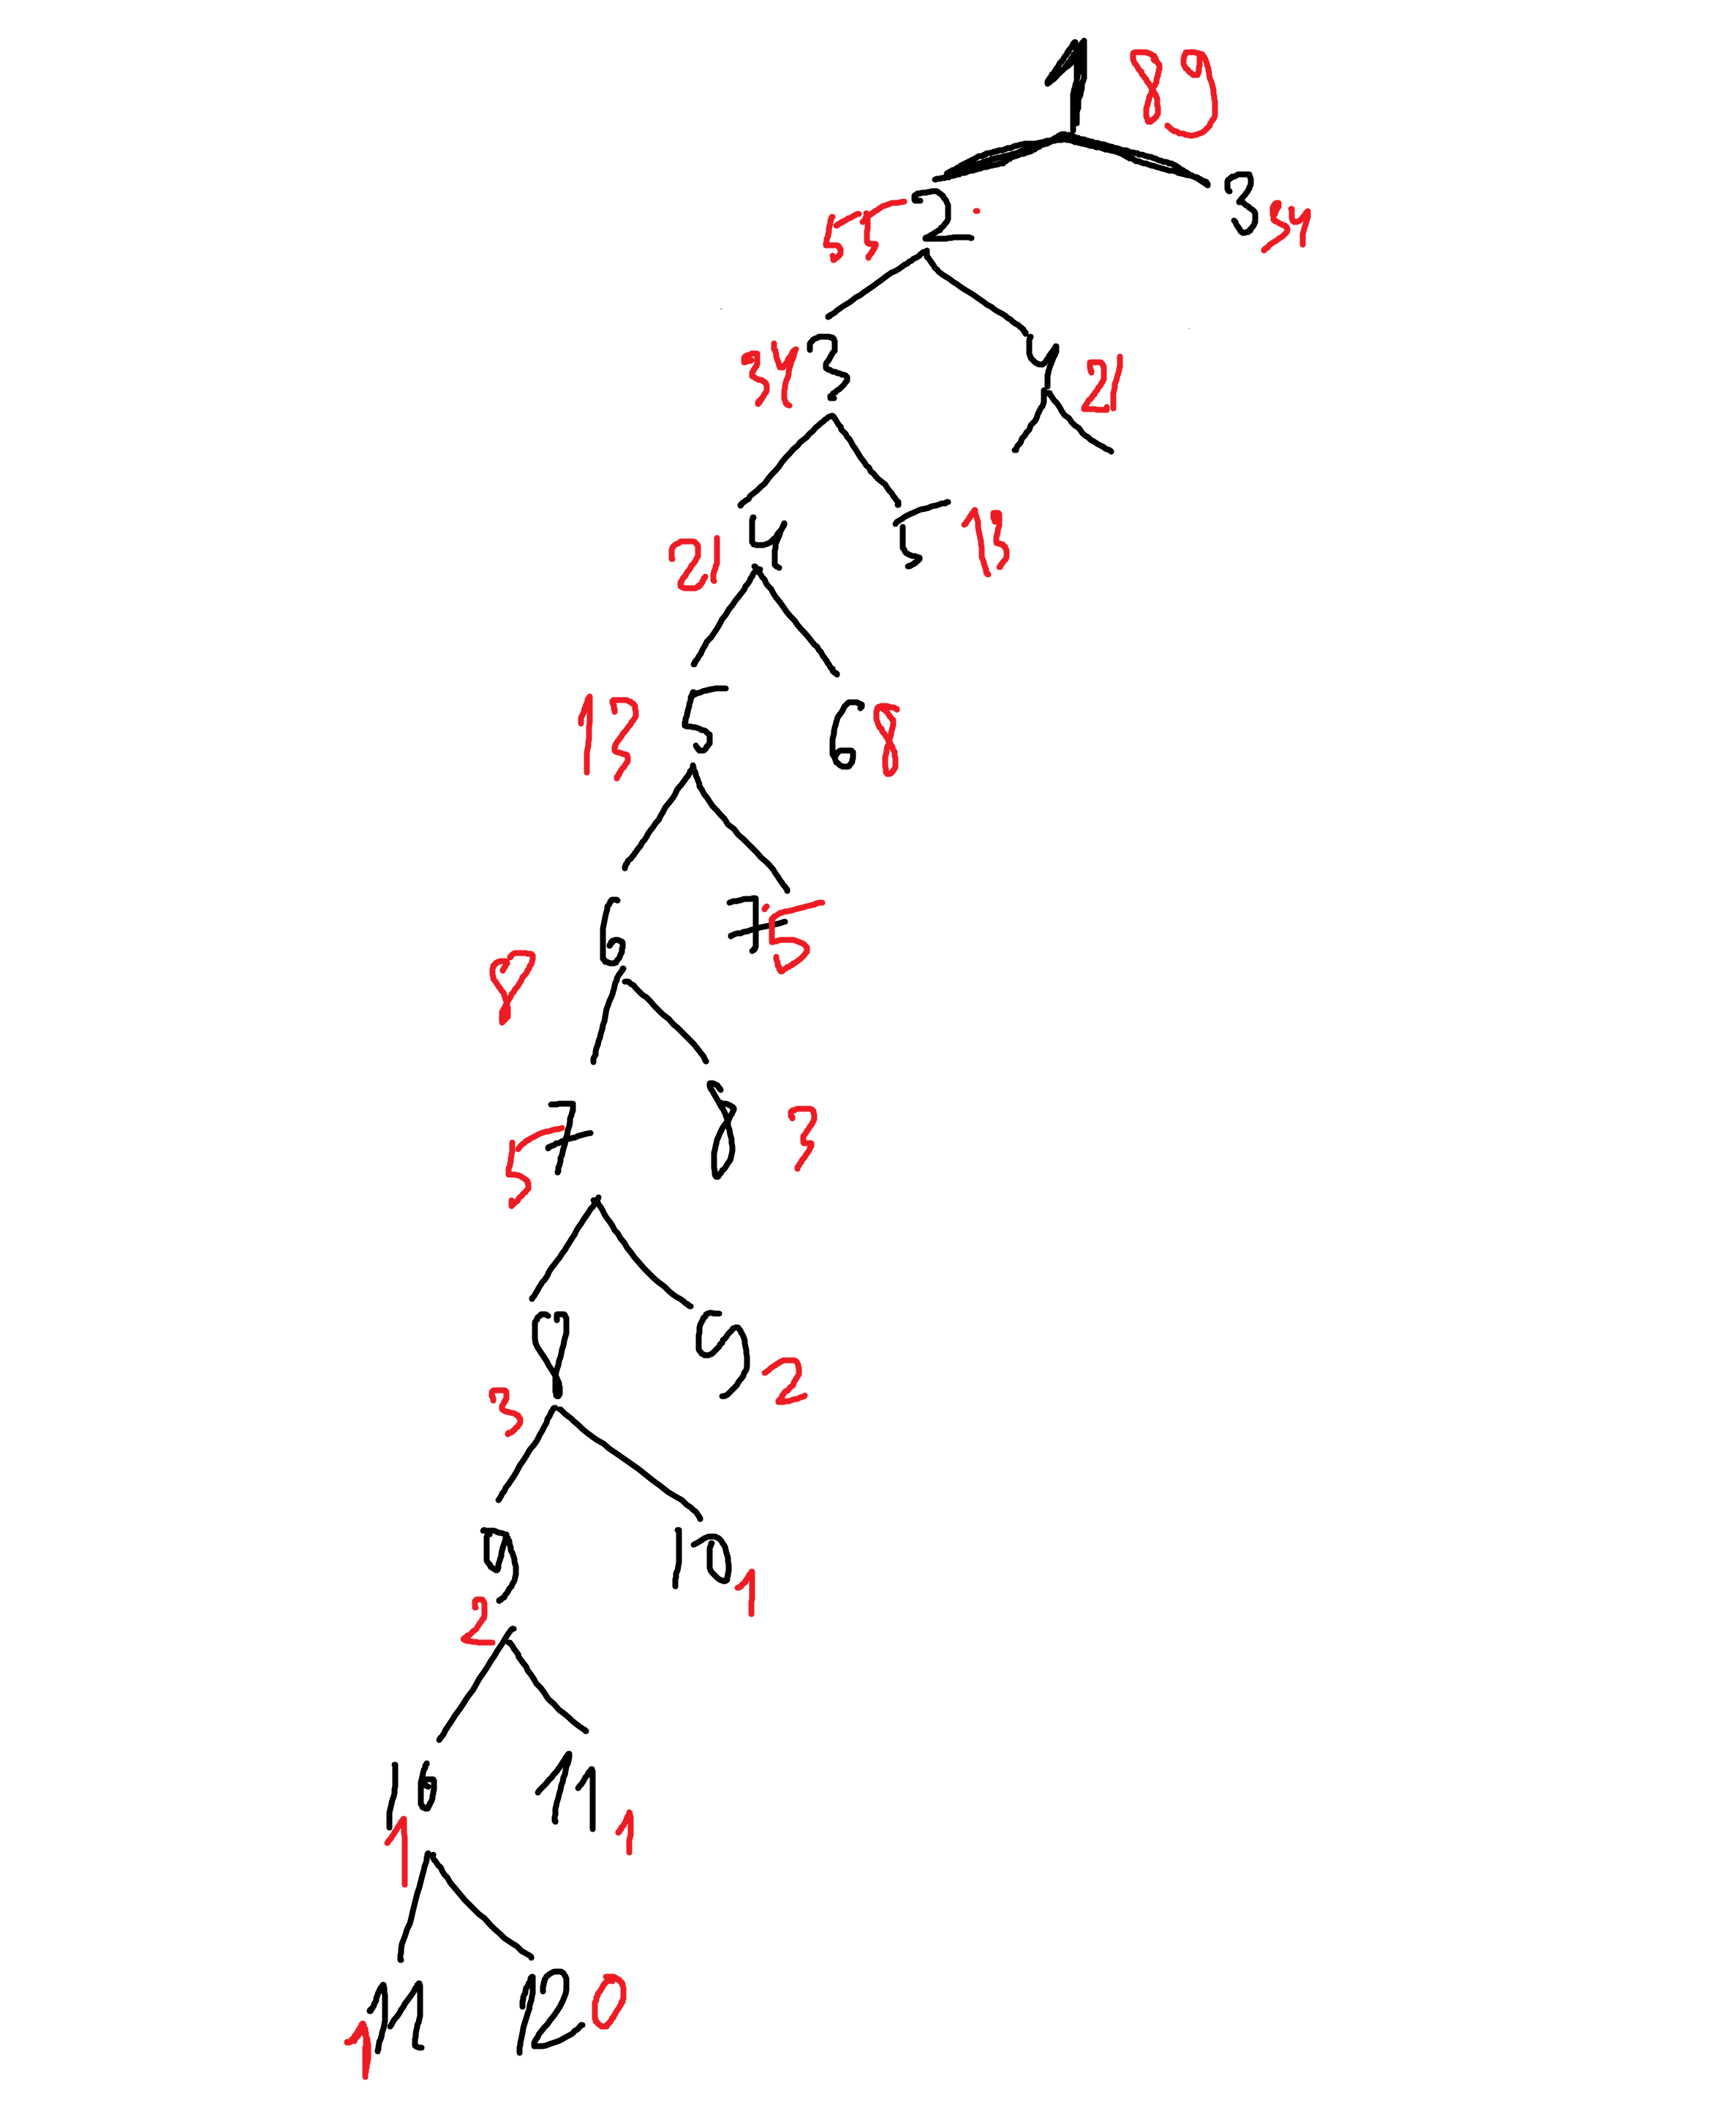 1 89
55 2 3 34
34 3 4 21
21 4 5 13
13 5 6 8
8 6 7 5
5 7 8 3
3 8 9 2
2 9 10 1
1 10 11 1
1 11 12 0